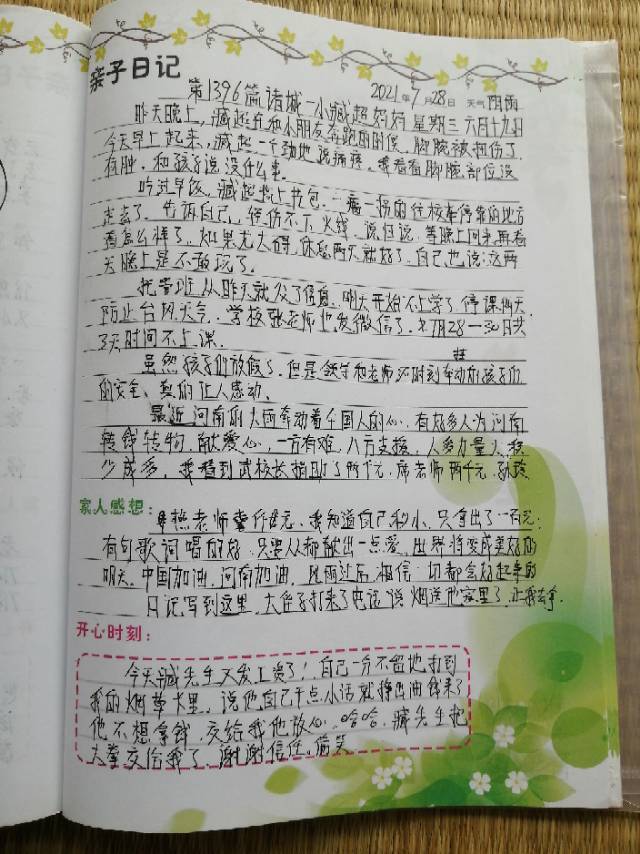 亲子日记
第1396篇 诸城一小臧超妈妈 星期三 六月十九日
2021年7月28日 天气 阴雨
昨天晚上,臧超在和小朋友奔跑的时候,脚腕被扭伤了
今天早上起来,臧超一个劲地说痛疼。我看看脚腕部位没
有肿,和孩子说没什么事。
吃过早饭,臧超背上书包,一瘸一拐的往校车停靠的地方
走去了。告诉自己,轻伤不下火线,说归说,等晚上回来再看
看怎么样了,如果尤大碍,休息两天就好了,自己也说:这两
天晚上是不敢玩了。
托管班从昨天就发了信息,明天开始不上学了,停课两天,
防止台风天气,学校张老师也发微信了,7月28一30日共
3天时间不上课。
虽然孩子们放假了,但是领导和老师还时刻牵动挂孩子们
的安全,真的让人感动。
最近河南的大雨牵动着全国人的心,有好多人为河南
转钱转物,献爱心,一方有难,八方支援,人多力量大,积
少成多,我看到武校长捐助了两千元,席老师两千元,孙
家人感想:
燕老师壹仟元,我知道自己和小,只拿出了一百元:
有句歌词唱的好,只要人都献出一点爱,世界将变成美好的
明天,中国加油,河南加油,风雨过后,相信一切都会好起来的
日记写到这里,大侄子打来了电话,说烟送他家里了,让我去拿。
开心时刻:
今天臧先生又发工资了!自己一分不留地打到
我的烟草卡里,说他自己干点小活就挣出油钱来了
他不想拿钱,交给我他放心,哈哈,臧先生把
大拳交给我了,谢谢信任。偷笑